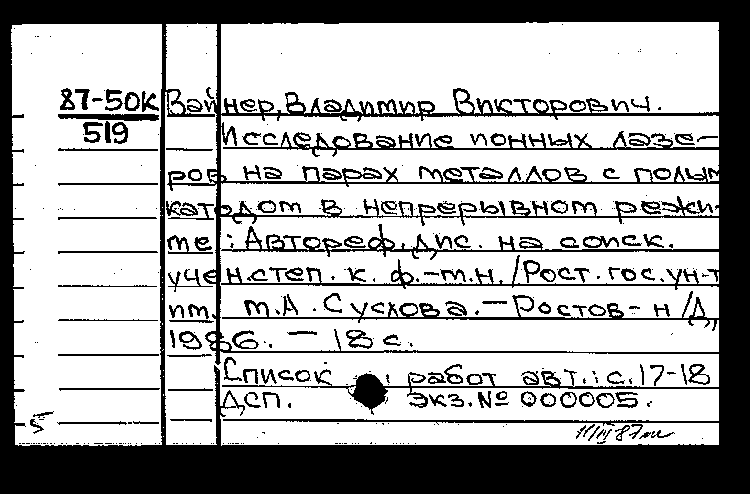 87-50К Вайнер, Владимир Викторович.
519 Исследование ионных лазе-
ров на парах металлов с полым
катодом в непрерывном режи-
ме : Автореф. дис. на соиск.
учен. степ. к. ф.-м.н. / Рост. гос. ун-т
им. М.А. Суслова. - Ростов-н/Д,
1986. - 18 с.
Список : работ авт.: с. 17-18
ДСП. экз. № 000005.
5
11/III 87